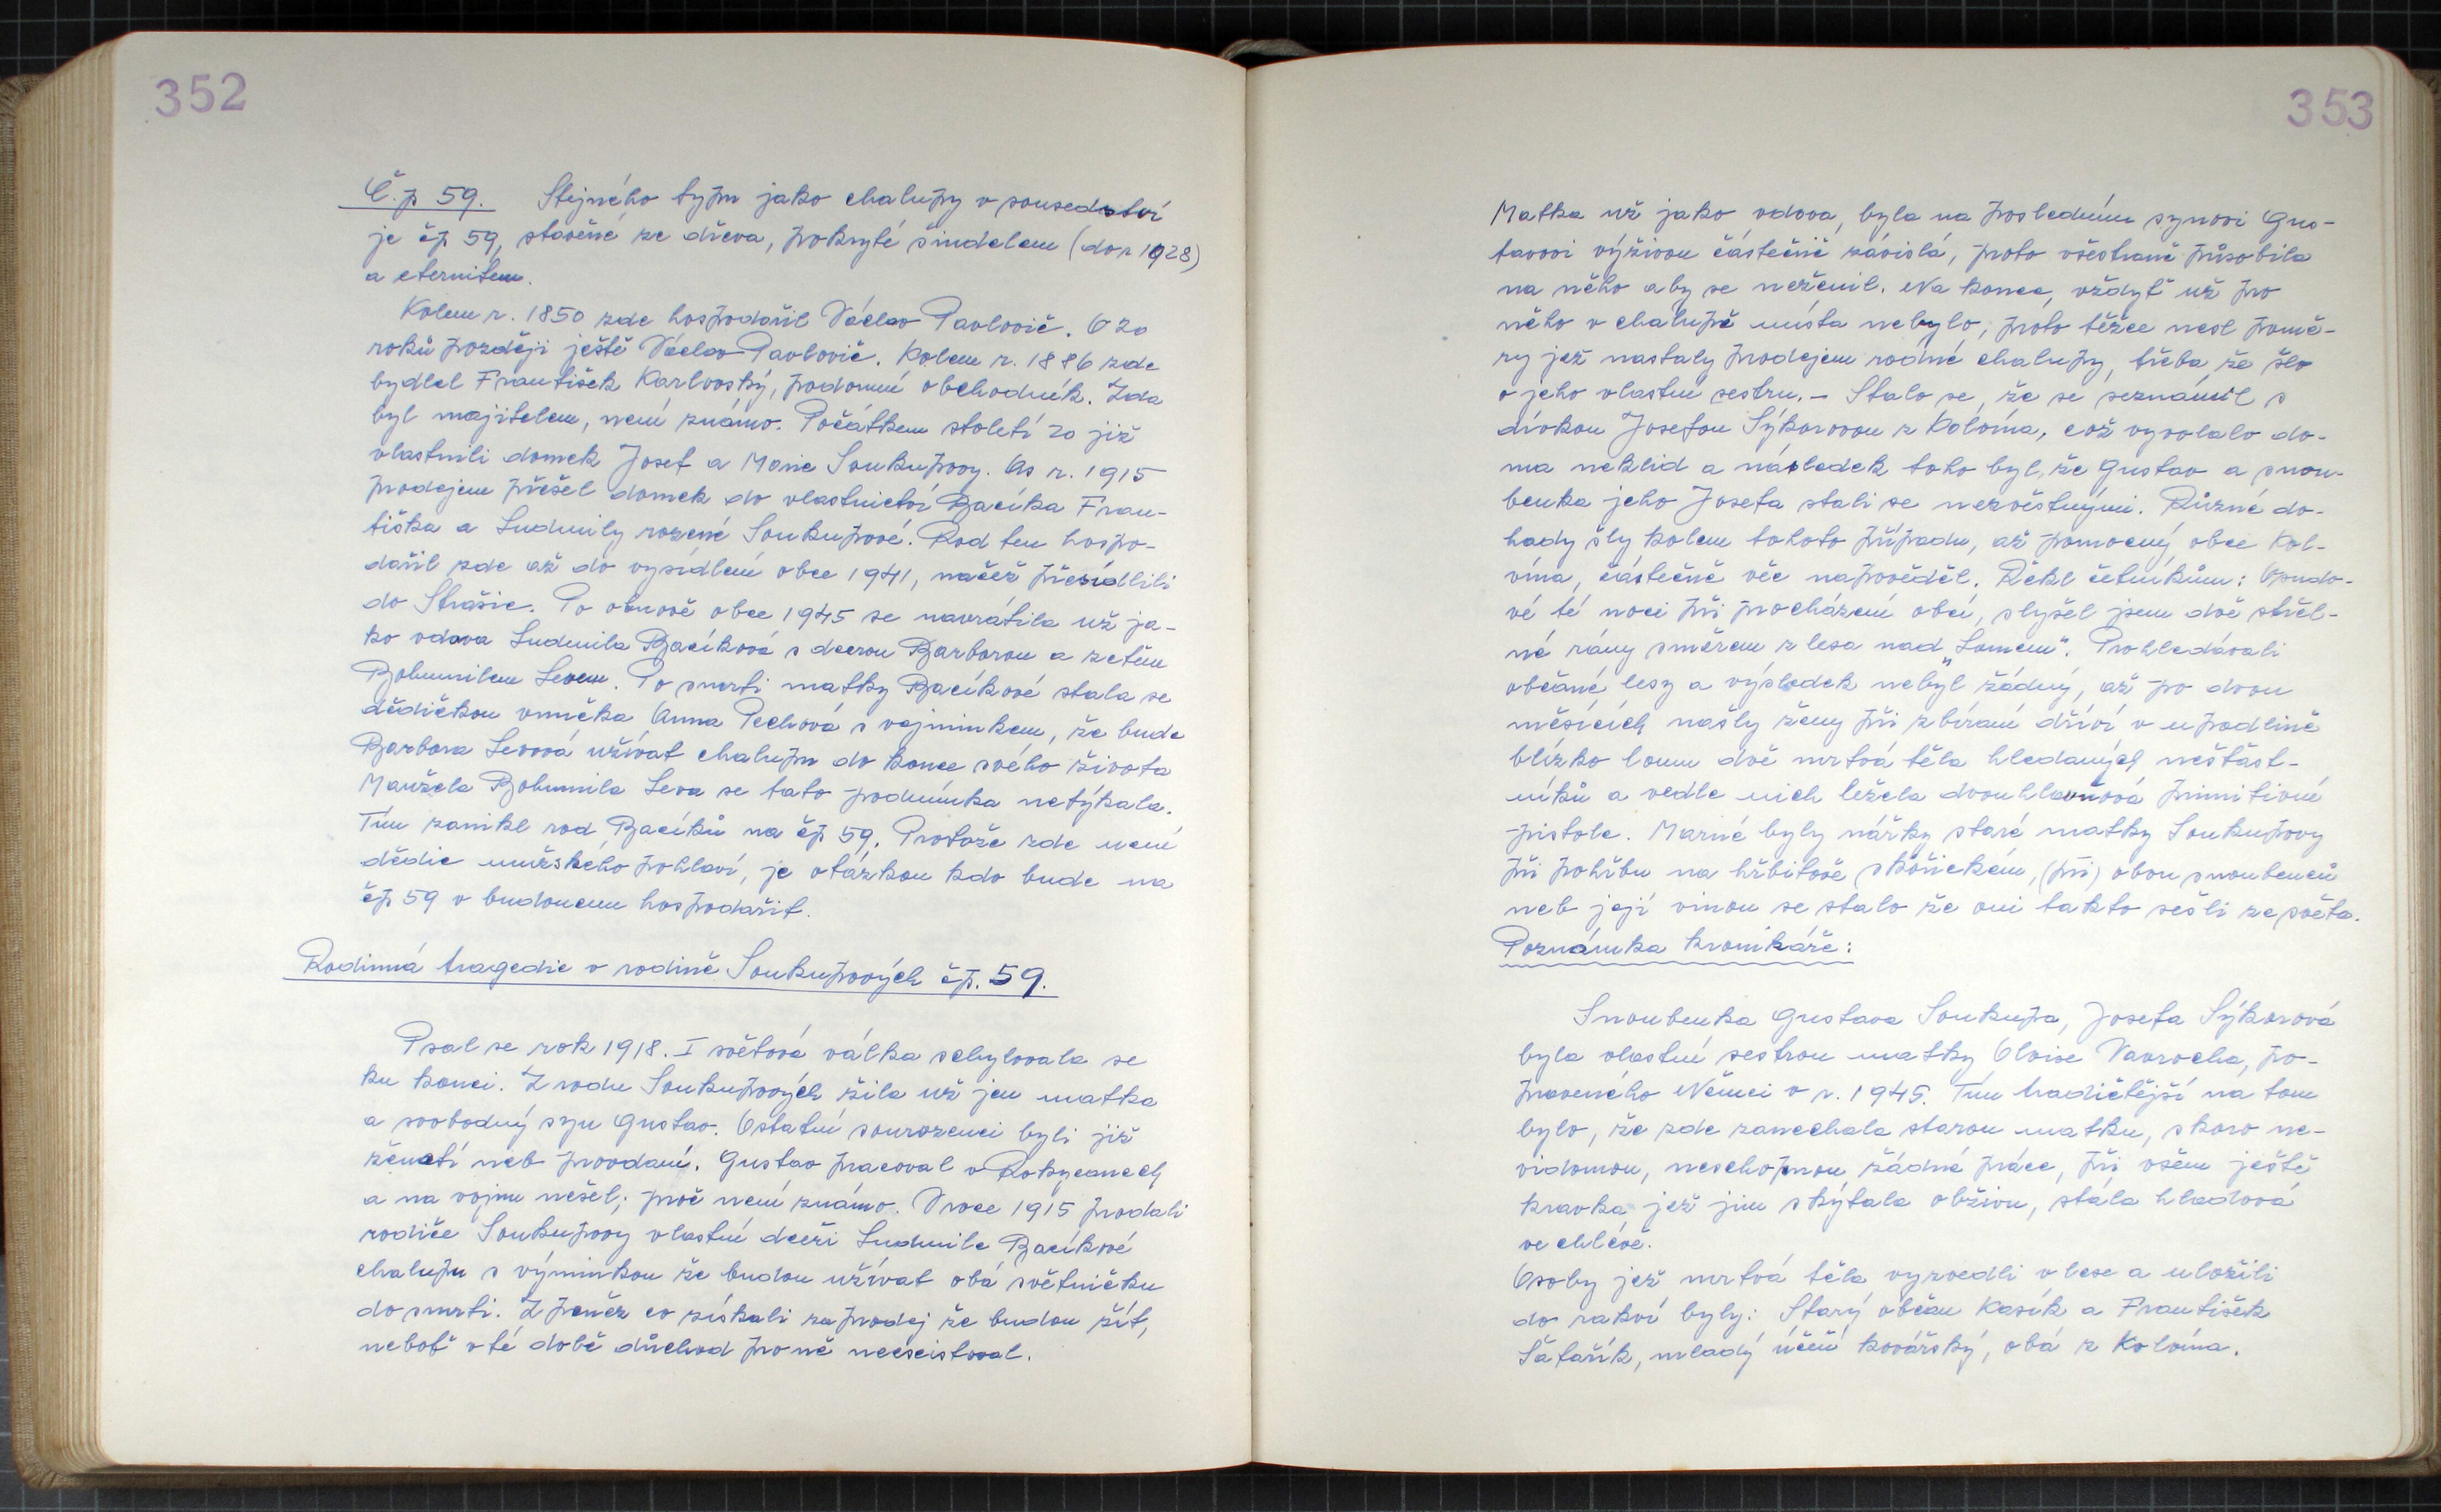 352
Č.p 59. Stejného typu jako chalupy v sousedství
je čp 59, stavěné ze dřeva, pokryté šindelem (do r 1928)
a eternitem.
Kolem r. 1850 zde hospodařil Václav Pavlovič. O 20
roků později ještě Václav Pavlovič. Kolem r. 1886 zde
bydlel František Karlovský, podomní obchodník. Zda
byl majitelem, není známo. Počátkem století 20 již
vlastnili domek Josef a Marie Soukupovy. As r. 1915
prodejem přešel domek do vlastnictví Bacíka Fran-
tiška a Ludmily rozené Soukupové. Rod ten hospo-
dařil zde až do vysídlení obce 1941, načež přesídlili
do Strašic. Po obnově obce 1945 se navrátila už ja-
ko vdova Ludmila Bacíková s dcerou Barborou a zetěm
Bohumilem Levem. Po smrti matky Bacíkové stala se
dědičkou vnučka Anna Pechová s vejminkem, že bude
Barbora Levová užívat chalupu do konce svého života
Manžela Bohumila Leva se tato podmínka netýkala.
Tím zanikl rod Bacíků na čp 59. Protože zde není
dědic mužského pohlaví, je otázkou kdo bude na
čp 59 v budoucnu hospodařit.
Rodinná tragedie v rodině Soukupových čp. 59.
Psal se rok 1918. I světová válka schylovala se
ku konci. Z rodu Soukupových žila už jen matka
a svobodný syn Gustav. Ostatní sourozenci byli již
ženatí neb provdaní. Gustav pracoval v Rokycanech
a na vojnu nešel; proč není známo. V roce 1915 prodali
rodiče Soukupovy vlastní dceři Ludmile Bacíkové
chalupu s výminkou že budou užívat obá světničku
do smrti. Z peněz co získali za prodej že budou žít,
neboť v té době důchod pro ně neexistoval.
353
Matka už jako vdova, byla na posledním synovi Gus-
tavovi výživou částečně závislá, proto všestraně působila
na něho aby se neženil. Na konec, vždyť už pro
něho v chalupě místa nebylo, proto těžce nesl pomě-
ry jež nastaly prodejem rodné chalupy, třeba, že šlo
o jeho vlastní sestru. – Stalo se, že se seznámil s
dívkou Josefou Sýkorovou z Kolvína, což vyvolalo do-
ma neklid a následek toho byl, že Gustav a snou-
benka jeho Josefa stali se nezvěstnými. Různé do-
hady šly kolem tohoto případu, až pomocný obce Kol-
vína, částečně věc napověděl. Řekl četníkům: Osudo-
vé té noci při procházení obcí, slyšel jsem dvě střel-
né rány směrem z lesa nad „Lomem“. Prohledávali
občané lesy a výsledek nebyl žádný, až po dvou
měsících našly ženy při sbíraní dříví v úpodlině
blízko lomu dvě mrtvá těla hledaných nešťast-
níků a vedle nich ležela dvouhlavňová primitivní
pistole. Marné byly nářky staré matky Soukupovy
při pohřbu na hřbitově skořickém, (při) obou snoubenců
neb její vinou se stalo že oni takto sešli ze světa.
Poznámka kronikáře:
Snoubenka Gustava Soukupa, Josefa Sýkorová
byla vlastní sestrou matky Aloise Vavrocha, po-
praveného Němci v r. 1945. Tím tragičtější na tom
bylo, že zde zanechala starou matku, skoro ne-
vidomou, neschopnou žádné práce, při všem ještě
kravka, jež jim skýtala obživu, stála hladová
ve chlévě.
Osoby jež mrtvá těla vyzvedli v lese a uložili
do rakví byly: Starý občan Kasík a František
Šafařík, mladý učeň kovářský, obá z Kolvína.